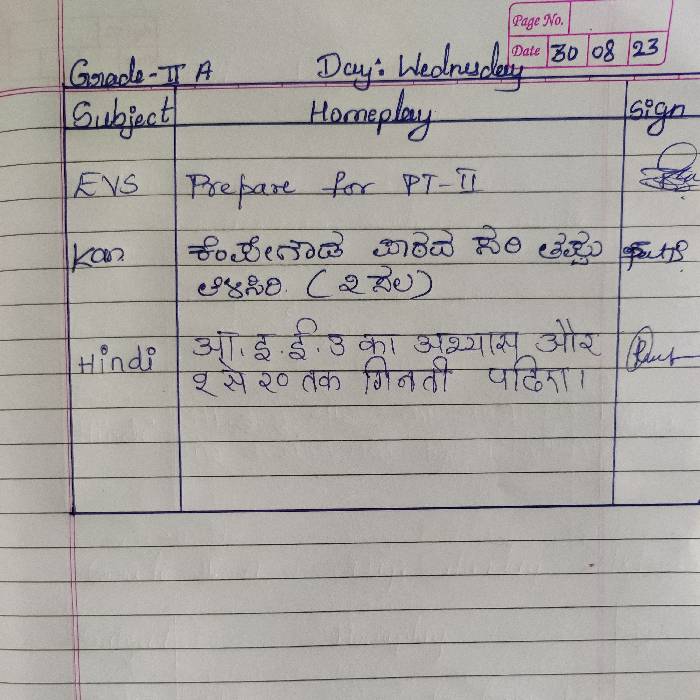 Page No.
Date 30 08 23
Grade-II A Day: Wednesday
Subject Homeplay Sign
EVS Prepare for PT-II
Kan ಕೆಂಪೇಗೌಡ ಪಾಠದ ಸರಿ ತಪ್ಪು
(೨ ಸಲ)
Hindi आ.इ.ई.उ का अभ्यास और
१ से २० तक गिनती पढिए।